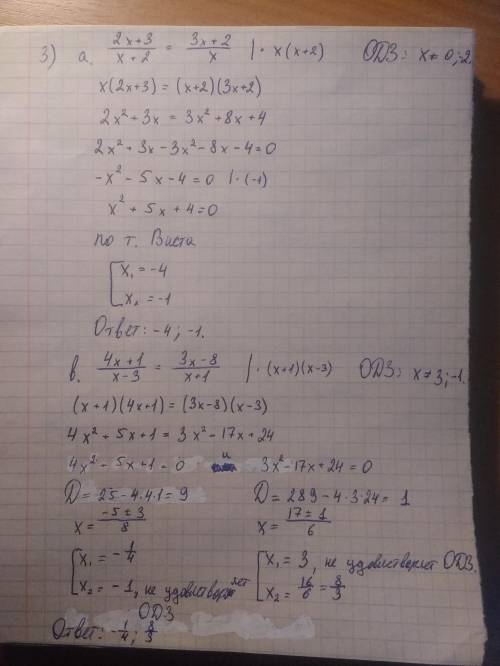 3) а. (2x+3)/(x+2) = (3x+2)/x |· x(x+2) ОДЗ: x≠0;-2.
x(2x+3) = (x+2)(3x+2)
2x²+3x = 3x²+8x+4
2x²+3x-3x²-8x-4=0
-x²-5x-4=0 |·(-1)
x²+5x+4=0
по т. Виета
[x₁ = -4
x₂ = -1
Ответ: -4; -1.
в. (4x+1)/(x-3) = (3x-8)/(x+1) |· (x+1)(x-3) ОДЗ: x≠3;-1.
(x+1)(4x+1)=(3x-8)(x-3)
4x²+5x+1=3x²-17x+24
4x²+5x+1=0 и 3x²-17x+24=0
D=25-4·4·1=9 D=289-4·3·24=1
x=(-5±3)/8 x=(17±1)/6
[x₁=-1/4 [x₁=3, не удовлетворяет ОДЗ.
x₂=-1, не удовлетворяет ОДЗ x₂=16/6=8/3
Ответ: -1/4; 8/3